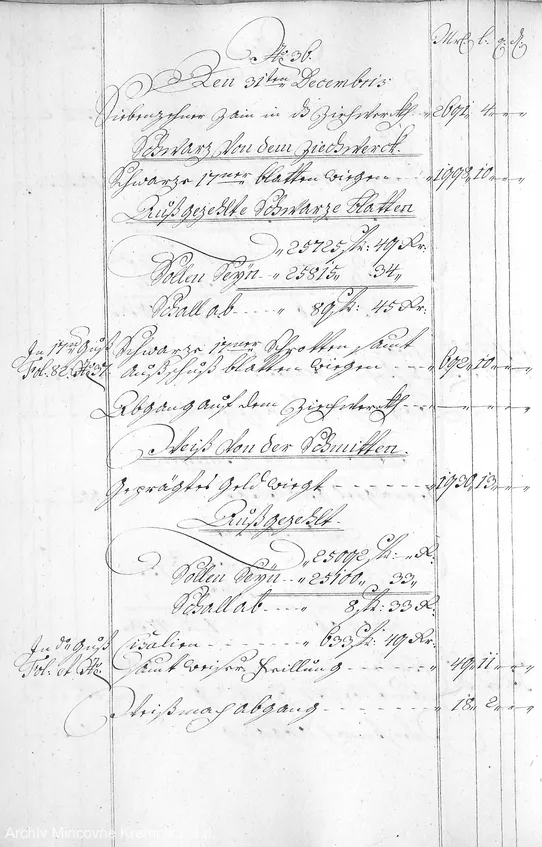 Mrk. l. q. d.
No 36.
Den 31ten Decembris
Siebenzehner Zain in das Ziechwerckh „ 2691 „ 4 „ – „ –
Schwarz von dem Ziechwerck.
Schwarze 17ner blatten wiegen „ 1998 „ 10 „ – „ –
Außgezehlte Schwarze blatten
„ 25725 stk: 49 Kr.
Sollen Seÿn „ 25815 „ 34 „
Schall ab „ 89 stk: 45 Kr.
In 17ner Guß Schwarze 17ner Schrotten samt
Fol. 82. No 37. Außschuß blatten wiegen „ 692 „ 10 „ – „ –
Abgang auf dem Ziechwerckh
Weiß von der Schmitten.
Geprägtes Geld wiegt „ 1930 „ 13 „ – „ –
Außgezehlt.
„ 25092 stk: „ K.
Sollen Seyn „ 25100 „ 33 „
Schall ab „ 8 stk: 33 K.
In do Guß Cisalien „ 633 stk: 49 Kr.
Fol: et No: samt weiser Feillung „ 49 „ 11 „ – „ –
Weißmach abgang „ 18 „ 2 „ – „ –
Archív Mincovne Kremnica